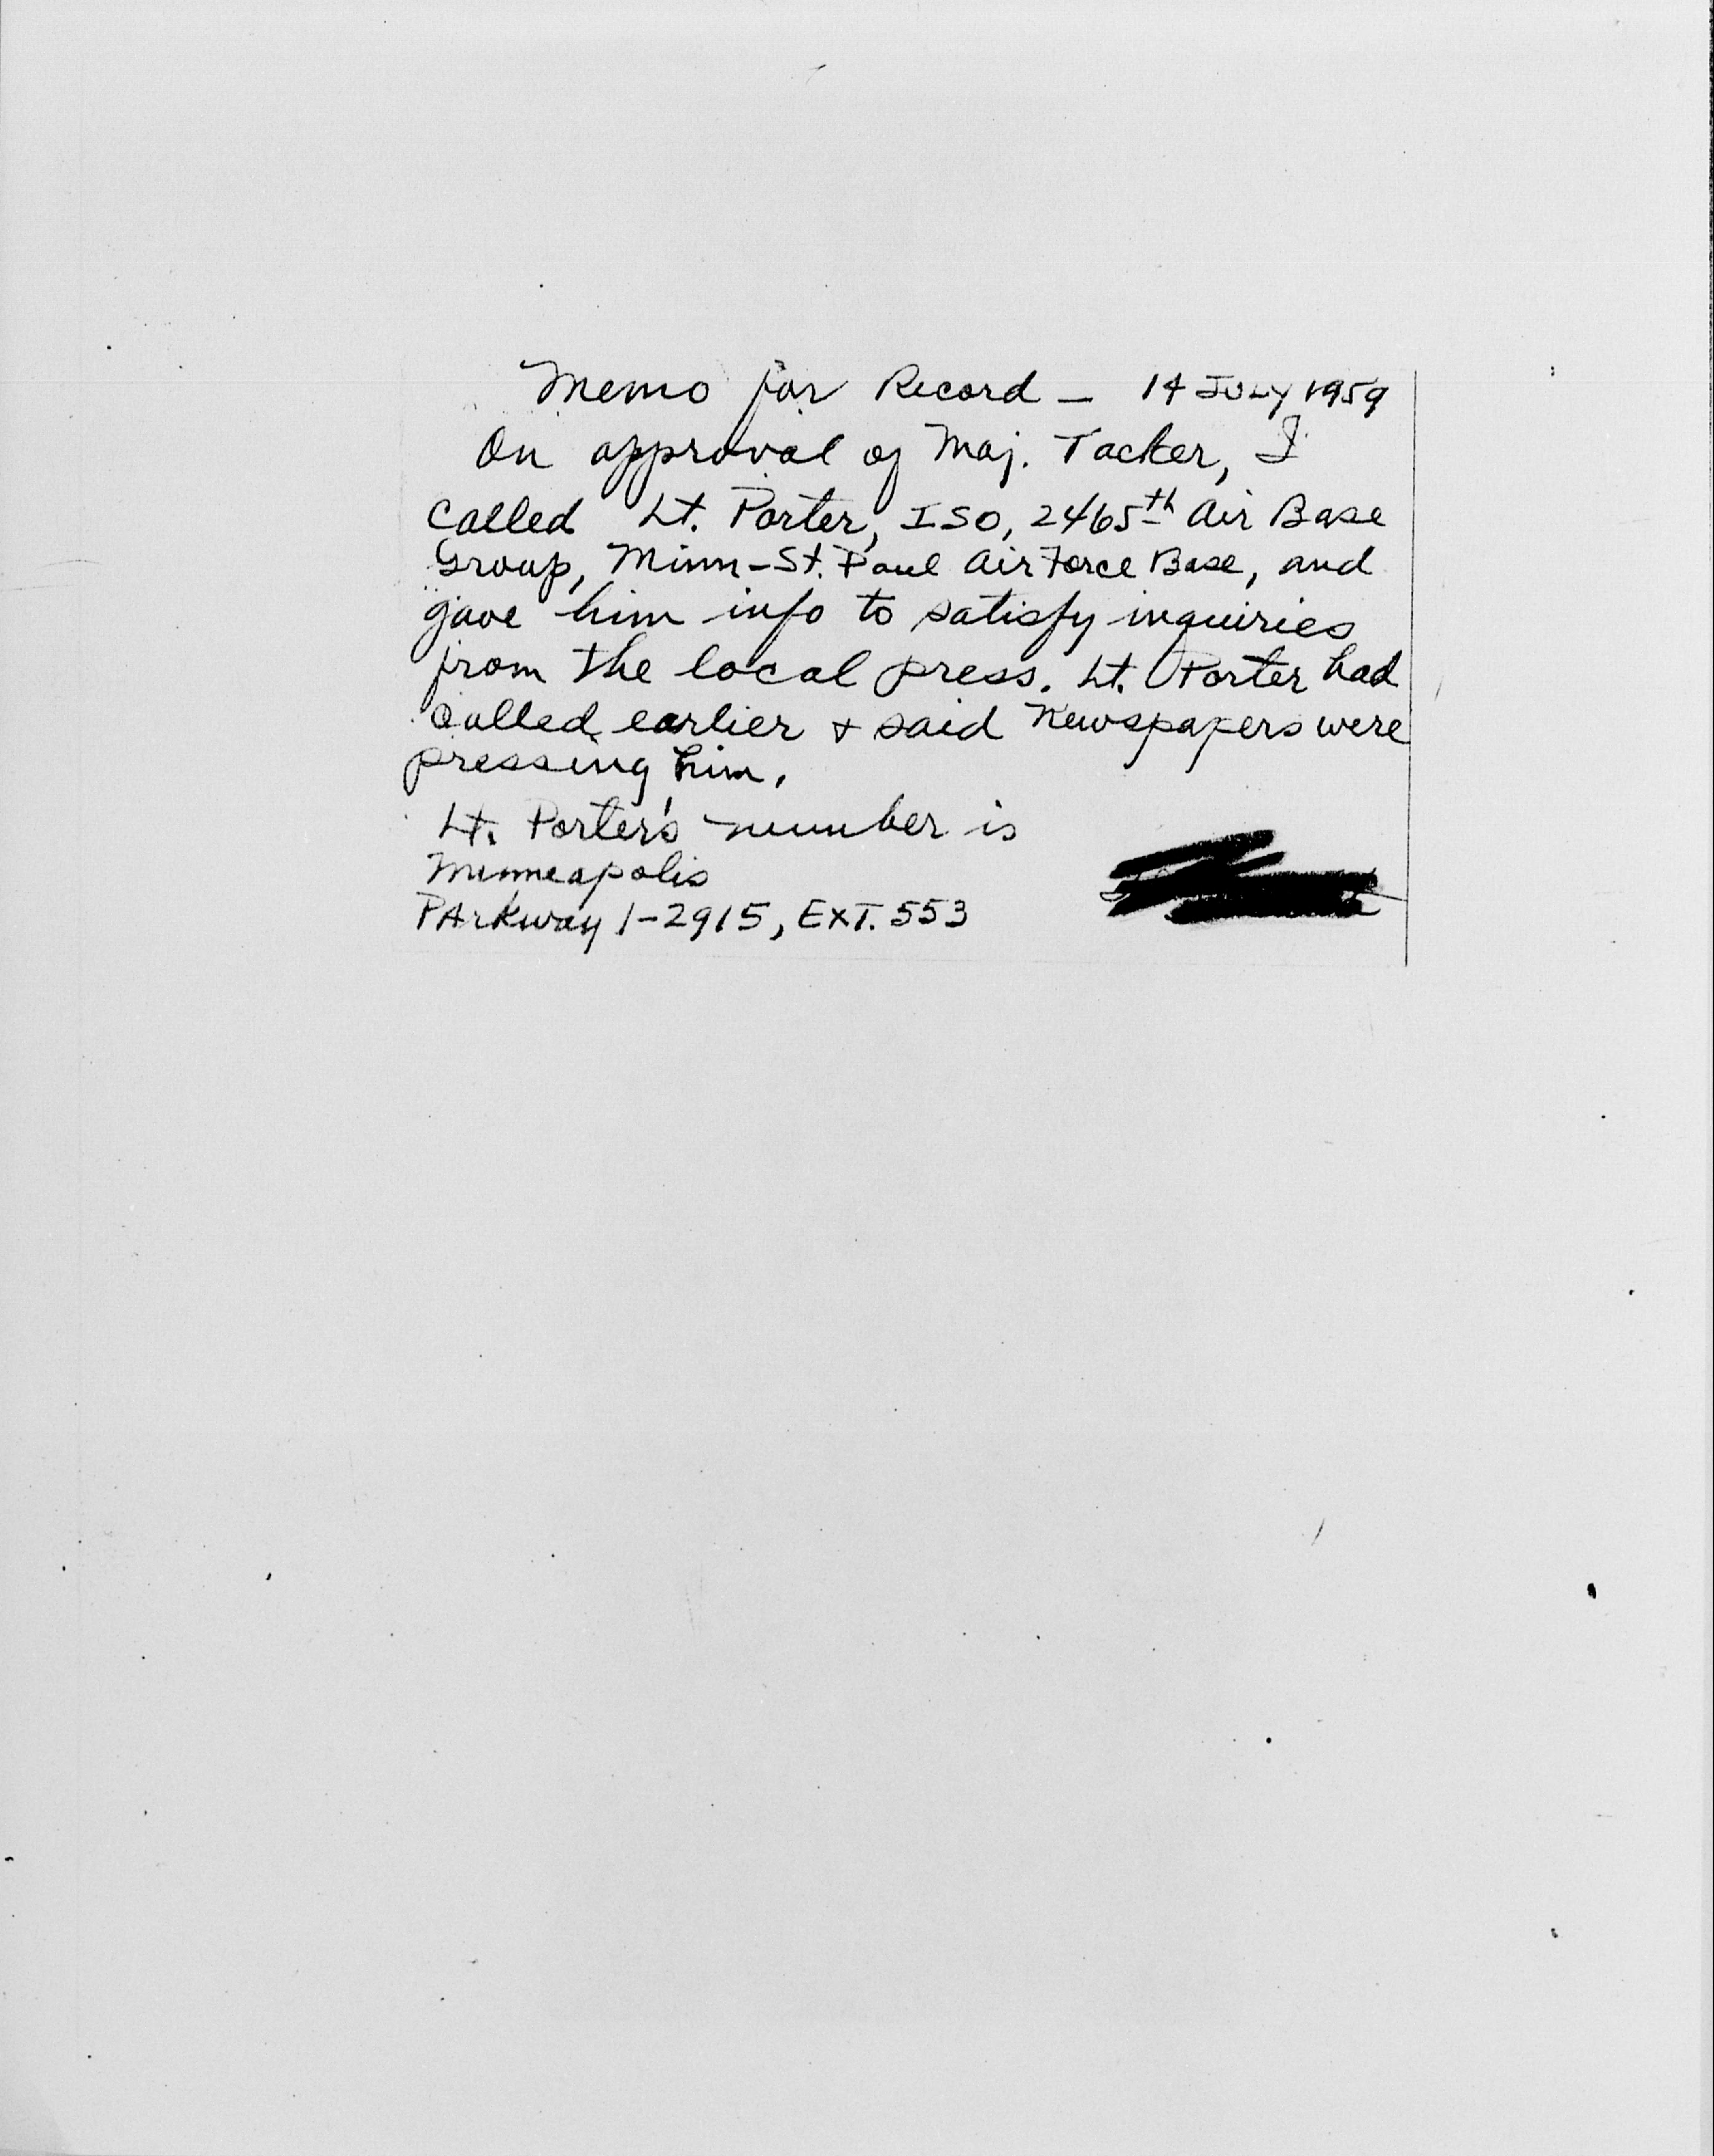 Memo for Record — 14 JULY 1959
On approval of Maj. Tacker, I
called Lt. Porter, ISO, 2465th Air Base
Group, Minn-St. Paul Air Force Base, and
gave him info to satisfy inquiries
from the local press. Lt. Porter had
called earlier + said Newspapers were
pressing him.
Lt. Porter's number is
Minneapolis
PArkway 1-2915, EXT. 553